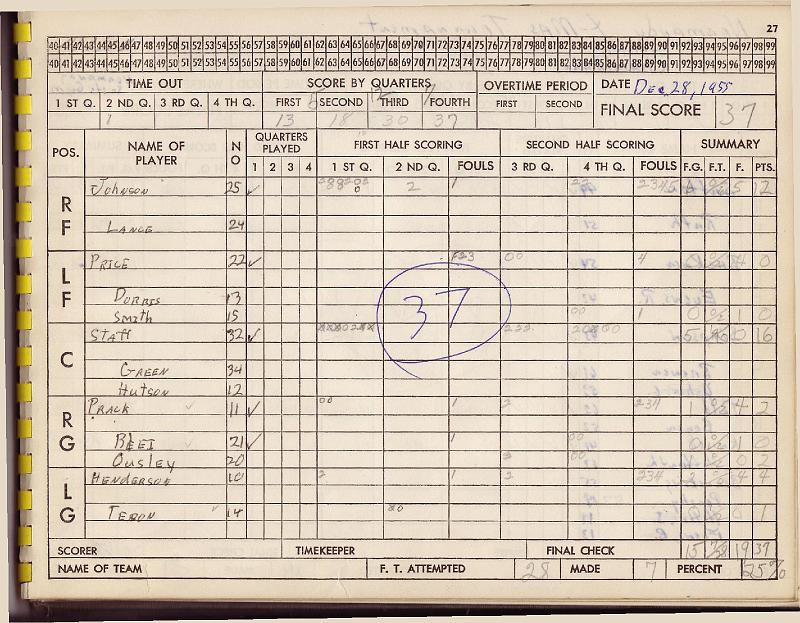 27
40 41 42 43 44 45 46 47 48 49 50 51 52 53 54 55 56 57 58 59 60 61 62 63 64 65 66 67 68 69 70 71 72 73 74 75 76 77 78 79 80 81 82 83 84 85 86 87 88 89 90 91 92 93 94 95 96 97 98 99
40 41 42 43 44 45 46 47 48 49 50 51 52 53 54 55 56 57 58 59 60 61 62 63 64 65 66 67 68 69 70 71 72 73 74 75 76 77 78 79 80 81 82 83 84 85 86 87 88 89 90 91 92 93 94 95 96 97 98 99
TIME OUT SCORE BY QUARTERS OVERTIME PERIOD DATE Dec 28, 1955
1 ST Q. 2 ND Q. 3 RD Q. 4 TH Q. FIRST SECOND THIRD FOURTH FIRST SECOND FINAL SCORE 37
1 13 18 30 37
POS. NAME OF PLAYER NO QUARTERS PLAYED FIRST HALF SCORING SECOND HALF SCORING SUMMARY
1 2 3 4 1 ST Q. 2 ND Q. FOULS 3 RD Q. 4 TH Q. FOULS F.G. F.T. F. PTS.
RF Johnson 25 ✓ 2 1 5 12
Lance 24
LF Price 22 ✓ 00 4 0
Dorris 13
Smith 15 00 1 0 1 0
C Staff 32 ✓ 222 5 0 16
Green 34
Hutson 12
RG Prack 11 ✓ 00 1 2 234 1 4 2
Blei 21 ✓ 1 00 0 1 0
Ousley 20 00 0 2
LG Henderson 10 2 1 2 234 2 4 4
Teron 14 0 1
37
SCORER TIMEKEEPER FINAL CHECK 15 7/28 19 37
NAME OF TEAM F. T. ATTEMPTED 28 MADE 7 PERCENT 25%